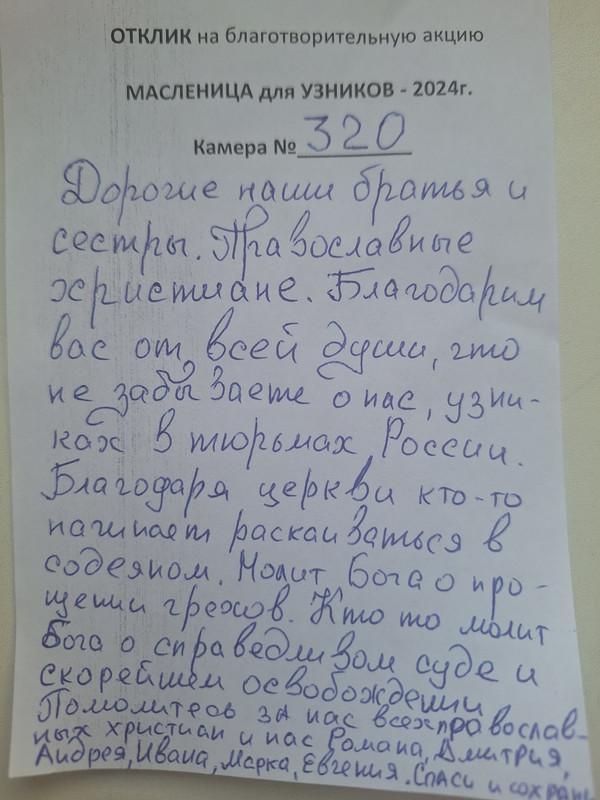 ОТКЛИК на благотворительную акцию
МАСЛЕНИЦА для УЗНИКОВ - 2024г.
Камера № 320
Дорогие наши братья и
сестры. Православные
християне. Благодарим
вас от всей души, что
не забываете о нас, узни-
ках в тюрьмах России.
Благодаря церкви кто-то
начинает раскаиваться в
содеяном. Молит Бога о про-
щении грехов. Кто то молит
Бога о справедливом суде и
скорейшем освобождении
Помолитесь за нас всех православ-
ных христиан и нас Романа, Дмитрия,
Андрея, Ивана, Марка, Евгения. Спаси и сохрани